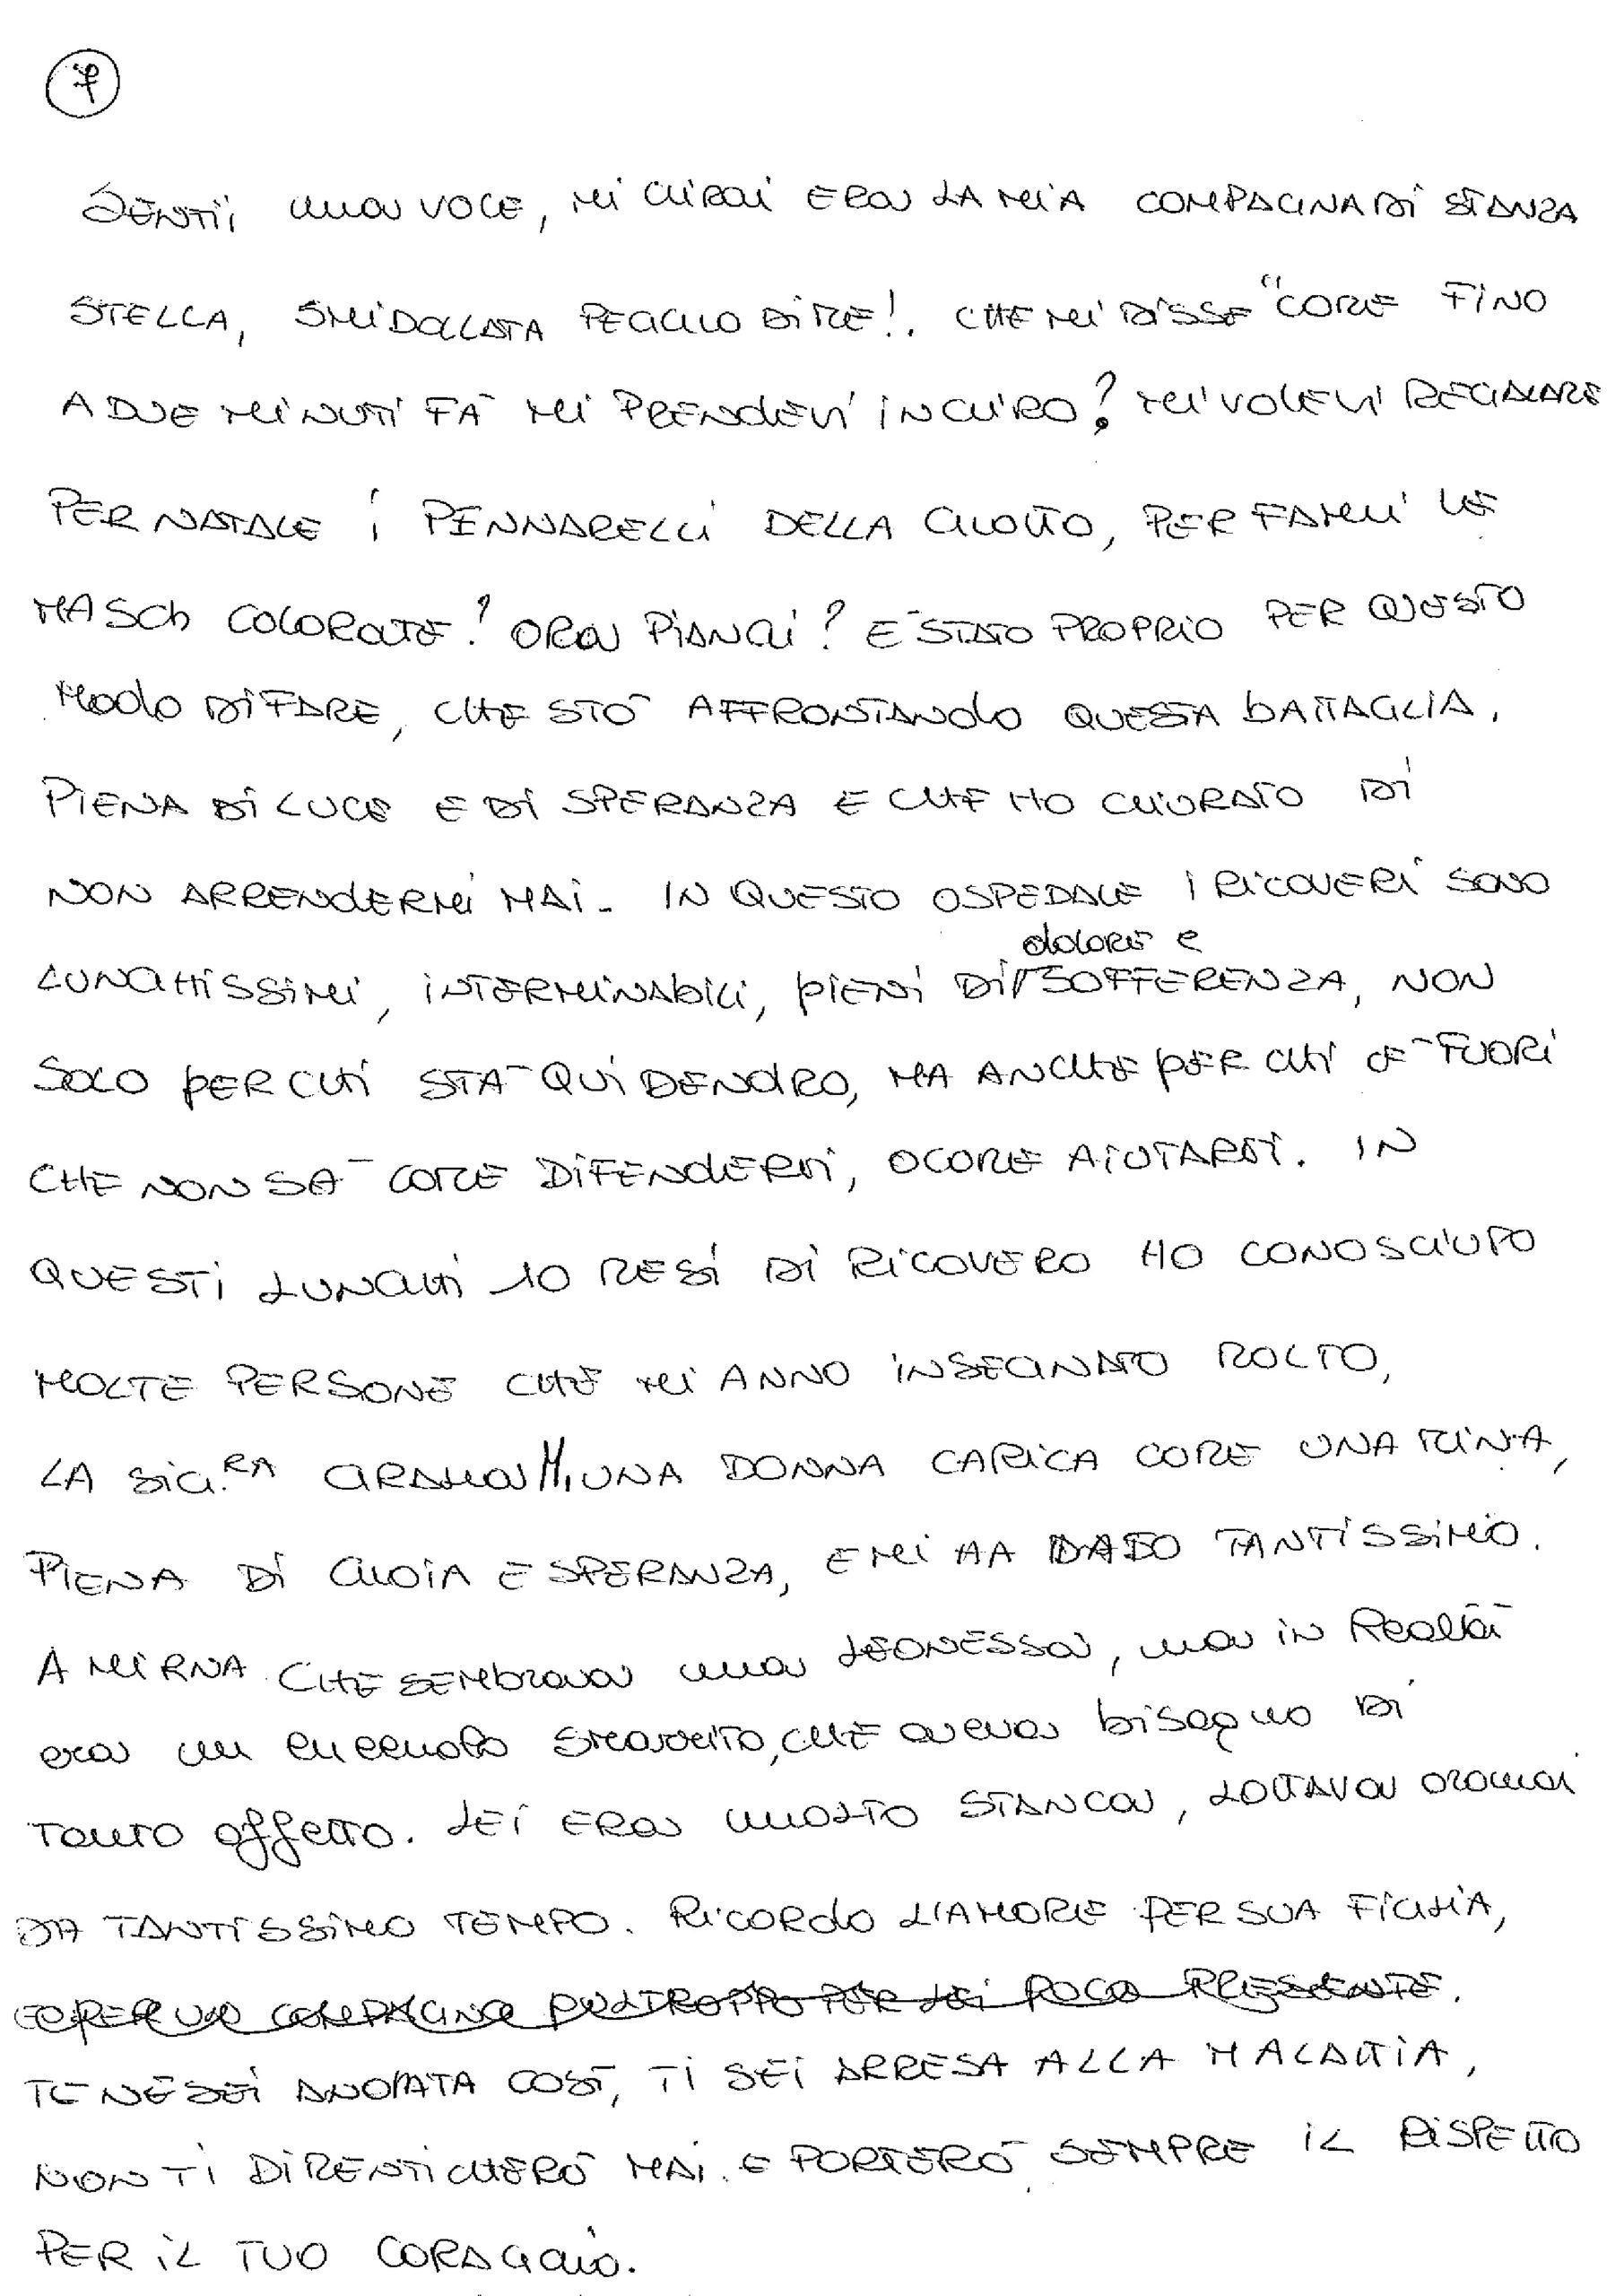 7
SENTÌ una VOCE, Mi GIRAi ERA LA MiA COMPAGNA Di STANZA
STELLA, SMIDOLLATA PEGGIO Di ME!. CHE Mi DISSE "COME FINO
A DUE MINUTI FÀ Mi PRENDEVI IN GIRO? Mi VOLEVI REGALARE
PER NATALE i PENNARELLI DELLA GIOTTO, PER FARMI LE
MASCH COLORATE! ORA PIANGI? E' STATO PROPRIO PER QUESTO
MODO Di FARE, CHE STÒ AFFRONTANDO QUESTA BATTAGLIA,
PIENA Di LUCE E Di SPERANZA E CHE HO GIURATO Di
NON ARRENDERMI MAI. IN QUESTO OSPEDALE i RICOVERI SONO
dolore e
LUNGHISSIMI, INTERMINABILI, PIENI Di SOFFERENZA, NON
SOLO PER CHI STÀ QUI DENDRO, MA ANCHE PER CHI È FUORI
CHE NON SÀ COME DIFENDERSI, O COME AIUTARTI. IN
QUESTI LUNGHI 10 MESI Di RICOVERO HO CONOSCIUTO
MOLTE PERSONE CHE Mi ANNO INSEGNATO MOLTO,
LA SIG.RA M, UNA DONNA CARICA COME UNA MINA,
PIENA Di GIOIA E SPERANZA, E Mi HA DATO TANTISSIMO.
A MIRNA CHE SEMBRAVA una LEONESSA, ma in Realtà
era un cucciolo smarrito, CHE aveva bisogno Di
Tanto affetto. LEI ERA MOLTO STANCA, LOTTAVA oramai
DA TANTISSIMO TEMPO. RICORDO L'AMORE PER SUA FIGLIA,
E PER UN COMPAGNO PULTROPPO PER LEI POCO PRESENTE.
TE NE SEI ANDATA COSÌ, Ti SEI ARRESA ALLA MALATTIA,
NON Ti DIMENTICHERÒ MAI. E PORTERÒ SEMPRE IL RISPETTO
PER IL TUO CORAGGIO.